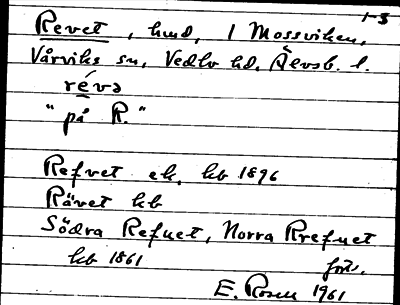 1-3
Revet, hmd, I Mossviken,
Vårviks sn, Vedbo hd, Älvsb. l.
révə
"på R."
Refvet ek. kb 1896
Rävet kb
Södra Refuet, Norra Rrefuet
kb 1861
forts.
E. Rosell 1961